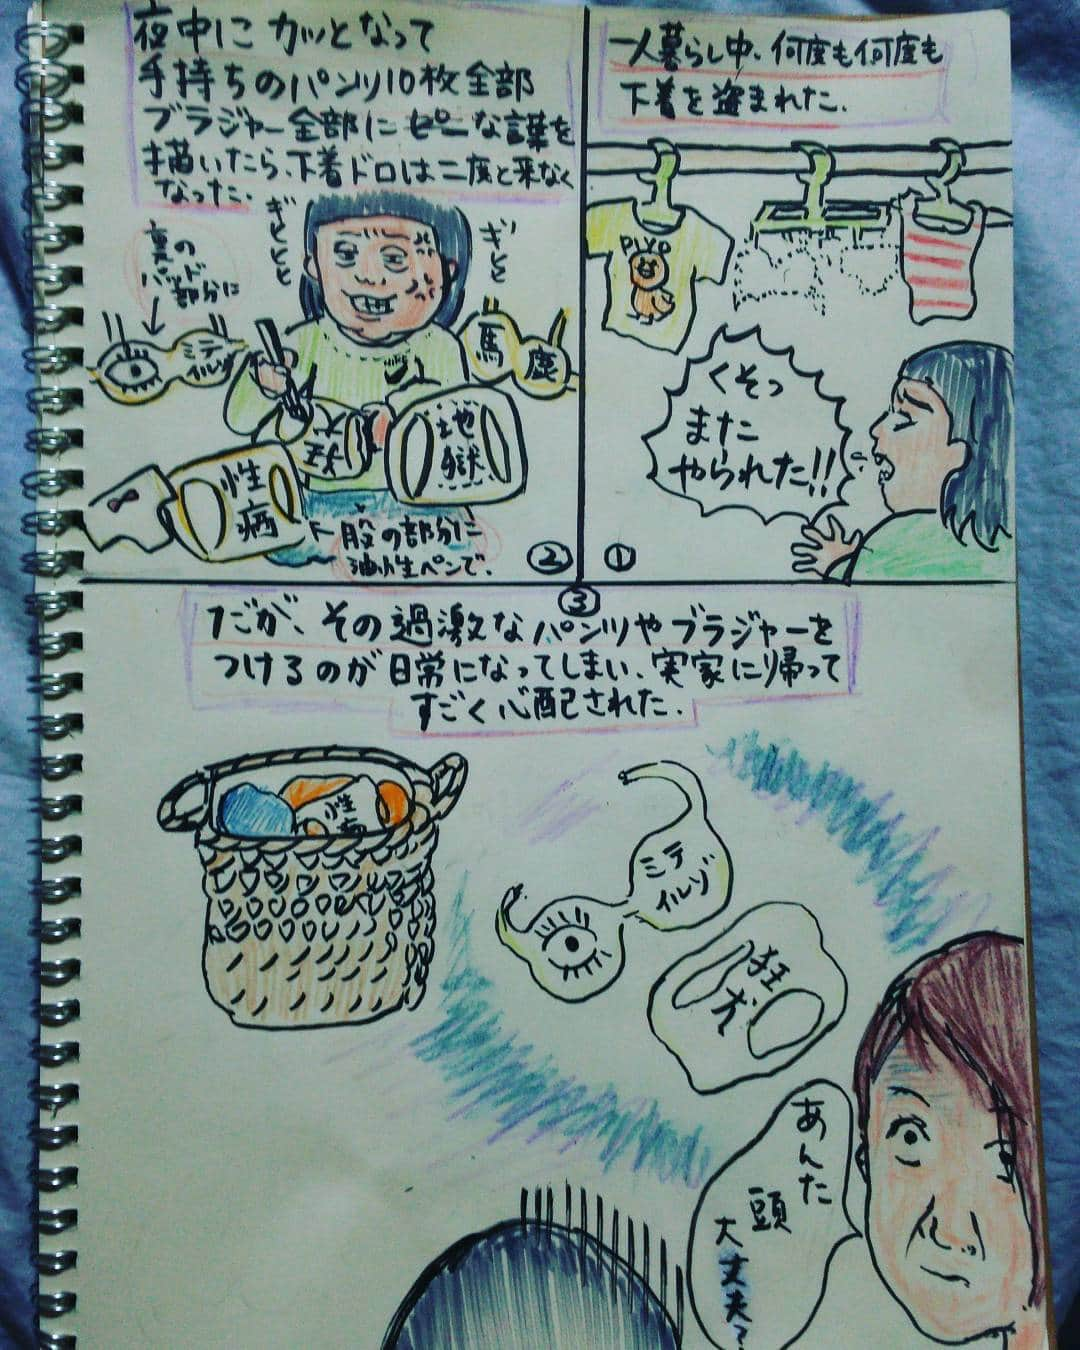 一人暮らし中、何度も何度も
下着を盗まれた.
PIYO
くそっ
また
やられた!!
①
夜中にカッとなって
手持ちのパンツ10枚全部
ブラジャー全部にピーな言葉を
描いたら、下着ドロは二度と来なく
なった.
ギヒヒヒ
ギヒヒ
裏の
パッド
部分に
ミテ
イルゾ
馬
鹿
狂犬
地獄
性病
股の部分に
油性ペンで.
②
③
だが、その過激なパンツやブラジャーを
つけるのが日常になってしまい、実家に帰って
すごく心配された.
性病
ミテ
イルゾ
狂犬
あんた
頭
大丈夫?